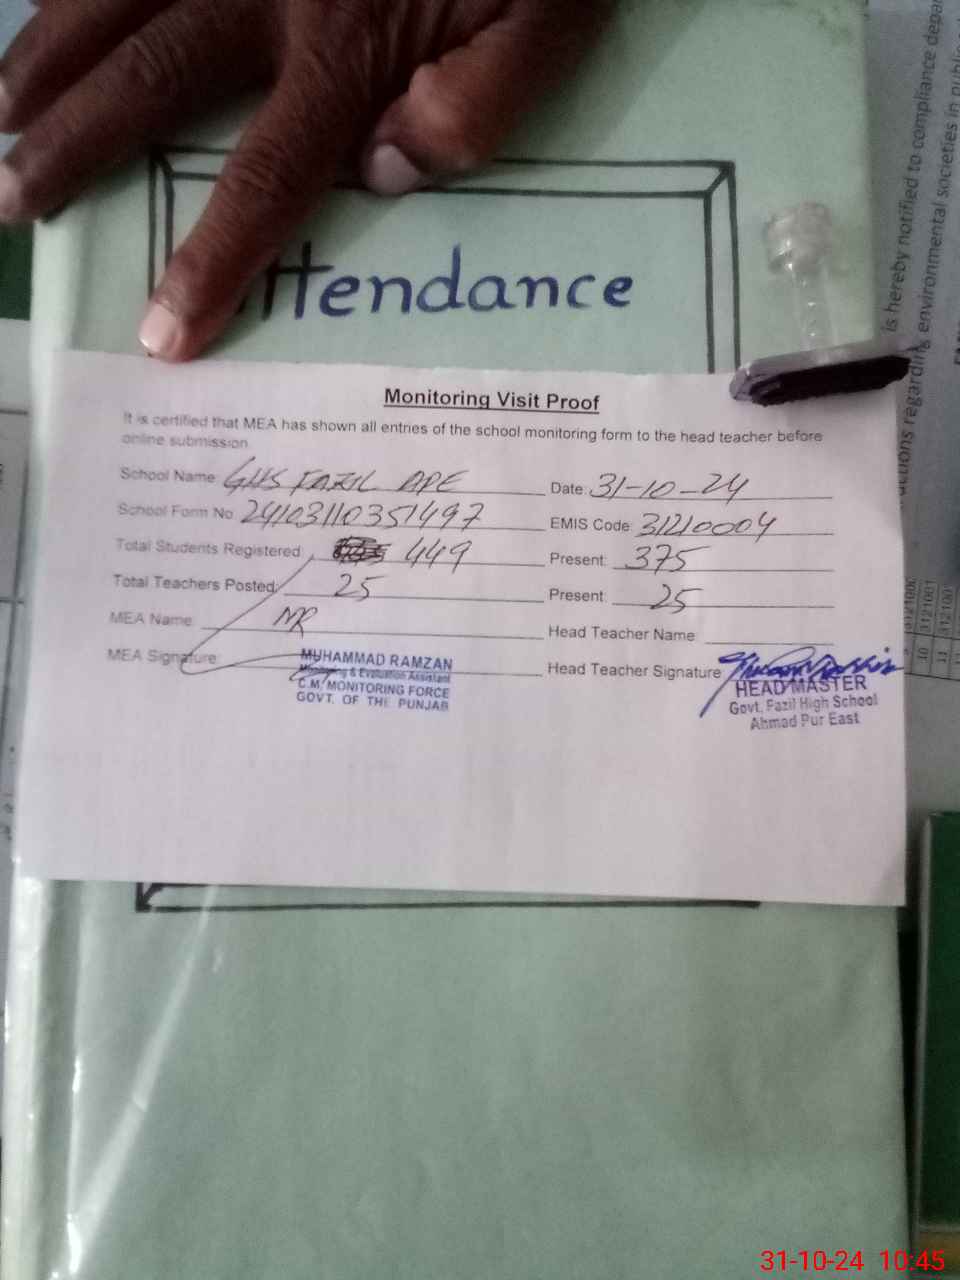 ttendance
Monitoring Visit Proof
It is certified that MEA has shown all entries of the school monitoring form to the head teacher before
online submission
School Name: GHS FAZIL APE Date: 31-10-24
School Form No. 24103110351497 EMIS Code: 31210004
Total Students Registered: 449 Present: 375
Total Teachers Posted: 25 Present: 25
MEA Name: MR Head Teacher Name:
MEA Signature: Head Teacher Signature:
MUHAMMAD RAMZAN
Monitoring & Evaluation Assistant
C.M. MONITORING FORCE
GOVT. OF THE PUNJAB
HEAD MASTER
Govt. Fazil High School
Ahmad Pur East
is hereby notified to compliance
environmental societies in
10
11
31-10-24 10:45